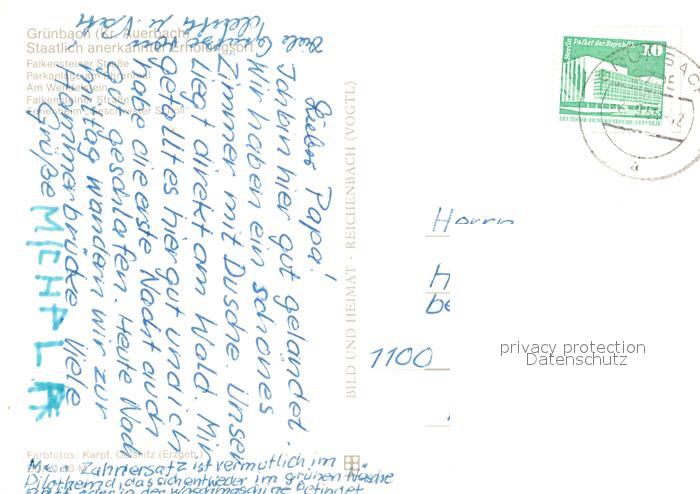 Grünbach (Kr. Auerbach)
Staatlich anerkannter Erholungsort
Falkensteiner Straße
Parkanlage am Ehrenmal
Am Wendelstein
Falkensteiner Straße
Ferienheim "Geschwister Scholl"
Lieber Papa!
Ich bin hier gut gelandet.
Wir haben ein schönes
Zimmer mit Dusche. Unser
Liegt direkt am Wald. Mir
gefällt es hier gut und ich
habe die erste Nacht auch
gut geschlafen. Heute Nach
mittag wandern wir zur
Hammerbrücke Viele
Grüße
MICHALA
Viele
u. Vati
BILD UND HEIMAT · REICHENBACH (VOGTL)
Farbfotos: Karpf, Oelsnitz (Erzgeb.)
Mein Zahnersatz ist vermutlich im
Pilothemd, das sich entweder im grünen Wäsche
oder in der Waschmaschine befindet
Berlin Palast der Republik 10
DEUTSCHE DEMOKRATISCHE REPUBLIK
Herrn
H
be
1100
privacy protection
Datenschutz